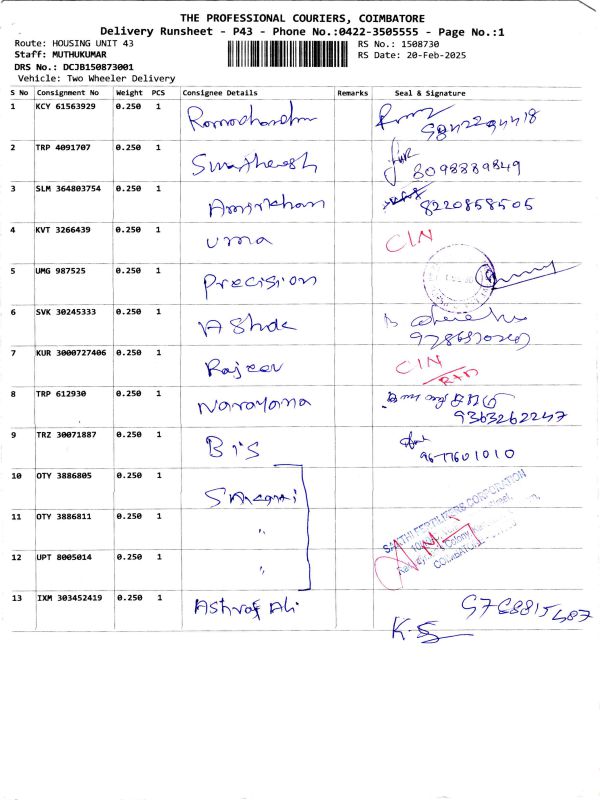 THE PROFESSIONAL COURIERS, COIMBATORE
Delivery Runsheet - P43 - Phone No.:0422-3505555 - Page No.:1
Route: HOUSING UNIT 43
RS No.: 1508730
Staff: MUTHUKUMAR
RS Date: 20-Feb-2025
DRS No.: DCJB150873001
Vehicle: Two Wheeler Delivery
S No Consignment No Weight PCS Consignee Details Remarks Seal & Signature
1 KCY 61563929 0.250 1
2 TRP 4091707 0.250 1 8098889849
3 SLM 364803754 0.250 1 Amirkhan 8220858505
4 KVT 3266439 0.250 1 uma CIN
5 UMG 987525 0.250 1 Precision
6 SVK 30245333 0.250 1
7 KUR 3000727406 0.250 1 Rajeev CIN
8 TRP 612930 0.250 1 Narayana 9363262247
9 TRZ 30071887 0.250 1 Bis 9677601010
10 OTY 3886805 0.250 1
11 OTY 3886811 0.250 1 "
12 UPT 8005014 0.250 1 "
SAKTHI FERTILIZERS CORPORATION
Colony
COIMBATORE
13 IXM 303452419 0.250 1 Ashraf Ali